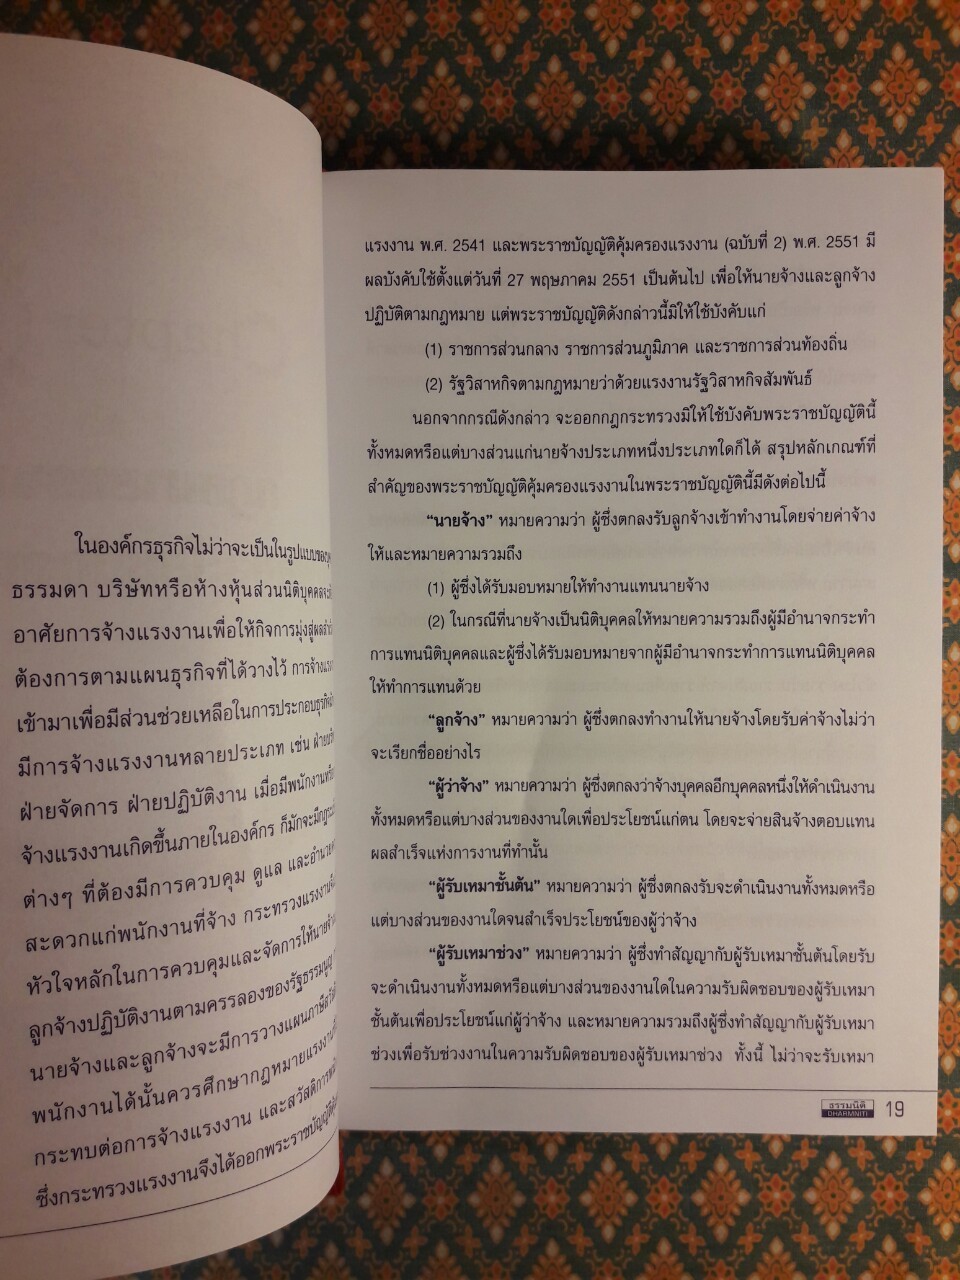 ในองค์กรธุรกิจไม่ว่าจะเป็นในรูปแบบของ
ธรรมดา บริษัทหรือห้างหุ้นส่วนนิติบุคคล
อาศัยการจ้างแรงงานเพื่อให้กิจการมุ่งสู่ผลสำเร็จ
ต้องการตามแผนธุรกิจที่ได้วางไว้ การจ้าง
เข้ามาเพื่อมีส่วนช่วยเหลือในการประกอบธุรกิจ
มีการจ้างแรงงานหลายประเภท เช่น ฝ่าย
ฝ่ายจัดการ ฝ่ายปฏิบัติงาน เมื่อมีพนักงาน
จ้างแรงงานเกิดขึ้นภายในองค์กร ก็มักจะมี
ต่างๆ ที่ต้องมีการควบคุม ดูแล และอำนวย
สะดวกแก่พนักงานที่จ้าง กระทรวงแรงงาน
หัวใจหลักในการควบคุมและจัดการให้นายจ้าง
ลูกจ้างปฏิบัติงานตามครรลองของรัฐธรรมนูญ
นายจ้างและลูกจ้างจะมีการวางแผนภาษี
พนักงานได้นั้นควรศึกษากฎหมายแรงงาน
กระทบต่อการจ้างแรงงาน และสวัสดิการ
ซึ่งกระทรวงแรงงานจึงได้ออกพระราชบัญญัติ
แรงงาน พ.ศ. 2541 และพระราชบัญญัติคุ้มครองแรงงาน (ฉบับที่ 2) พ.ศ. 2551 มี
ผลบังคับใช้ตั้งแต่วันที่ 27 พฤษภาคม 2551 เป็นต้นไป เพื่อให้นายจ้างและลูกจ้าง
ปฏิบัติตามกฎหมาย แต่พระราชบัญญัติดังกล่าวนี้มิให้ใช้บังคับแก่
(1) ราชการส่วนกลาง ราชการส่วนภูมิภาค และราชการส่วนท้องถิ่น
(2) รัฐวิสาหกิจตามกฎหมายว่าด้วยแรงงานรัฐวิสาหกิจสัมพันธ์
นอกจากกรณีดังกล่าว จะออกกฎกระทรวงมิให้ใช้บังคับพระราชบัญญัตินี้
ทั้งหมดหรือแต่บางส่วนแก่นายจ้างประเภทหนึ่งประเภทใดก็ได้ สรุปหลักเกณฑ์ที่
สำคัญของพระราชบัญญัติคุ้มครองแรงงานในพระราชบัญญัตินี้มีดังต่อไปนี้
“นายจ้าง” หมายความว่า ผู้ซึ่งตกลงรับลูกจ้างเข้าทำงานโดยจ่ายค่าจ้าง
ให้และหมายความรวมถึง
(1) ผู้ซึ่งได้รับมอบหมายให้ทำงานแทนนายจ้าง
(2) ในกรณีที่นายจ้างเป็นนิติบุคคลให้หมายความรวมถึงผู้มีอำนาจกระทำ
การแทนนิติบุคคลและผู้ซึ่งได้รับมอบหมายจากผู้มีอำนาจกระทำการแทนนิติบุคคล
ให้ทำการแทนด้วย
“ลูกจ้าง” หมายความว่า ผู้ซึ่งตกลงทำงานให้นายจ้างโดยรับค่าจ้างไม่ว่า
จะเรียกชื่ออย่างไร
“ผู้ว่าจ้าง” หมายความว่า ผู้ซึ่งตกลงว่าจ้างบุคคลอีกบุคคลหนึ่งให้ดำเนินงาน
ทั้งหมดหรือแต่บางส่วนของงานใดเพื่อประโยชน์แก่ตน โดยจะจ่ายสินจ้างตอบแทน
ผลสำเร็จแห่งการงานที่ทำนั้น
“ผู้รับเหมาชั้นต้น” หมายความว่า ผู้ซึ่งตกลงรับจะดำเนินงานทั้งหมดหรือ
แต่บางส่วนของงานใดจนสำเร็จประโยชน์ของผู้ว่าจ้าง
“ผู้รับเหมาช่วง” หมายความว่า ผู้ซึ่งทำสัญญากับผู้รับเหมาชั้นต้นโดยรับ
จะดำเนินงานทั้งหมดหรือแต่บางส่วนของงานใดในความรับผิดชอบของผู้รับเหมา
ชั้นต้นเพื่อประโยชน์แก่ผู้ว่าจ้าง และหมายความรวมถึงผู้ซึ่งทำสัญญากับผู้รับเหมา
ช่วงเพื่อรับช่วงงานในความรับผิดชอบของผู้รับเหมาช่วง ทั้งนี้ ไม่ว่าจะรับเหมา
ธรรมนิติ
DHARMNITI
19